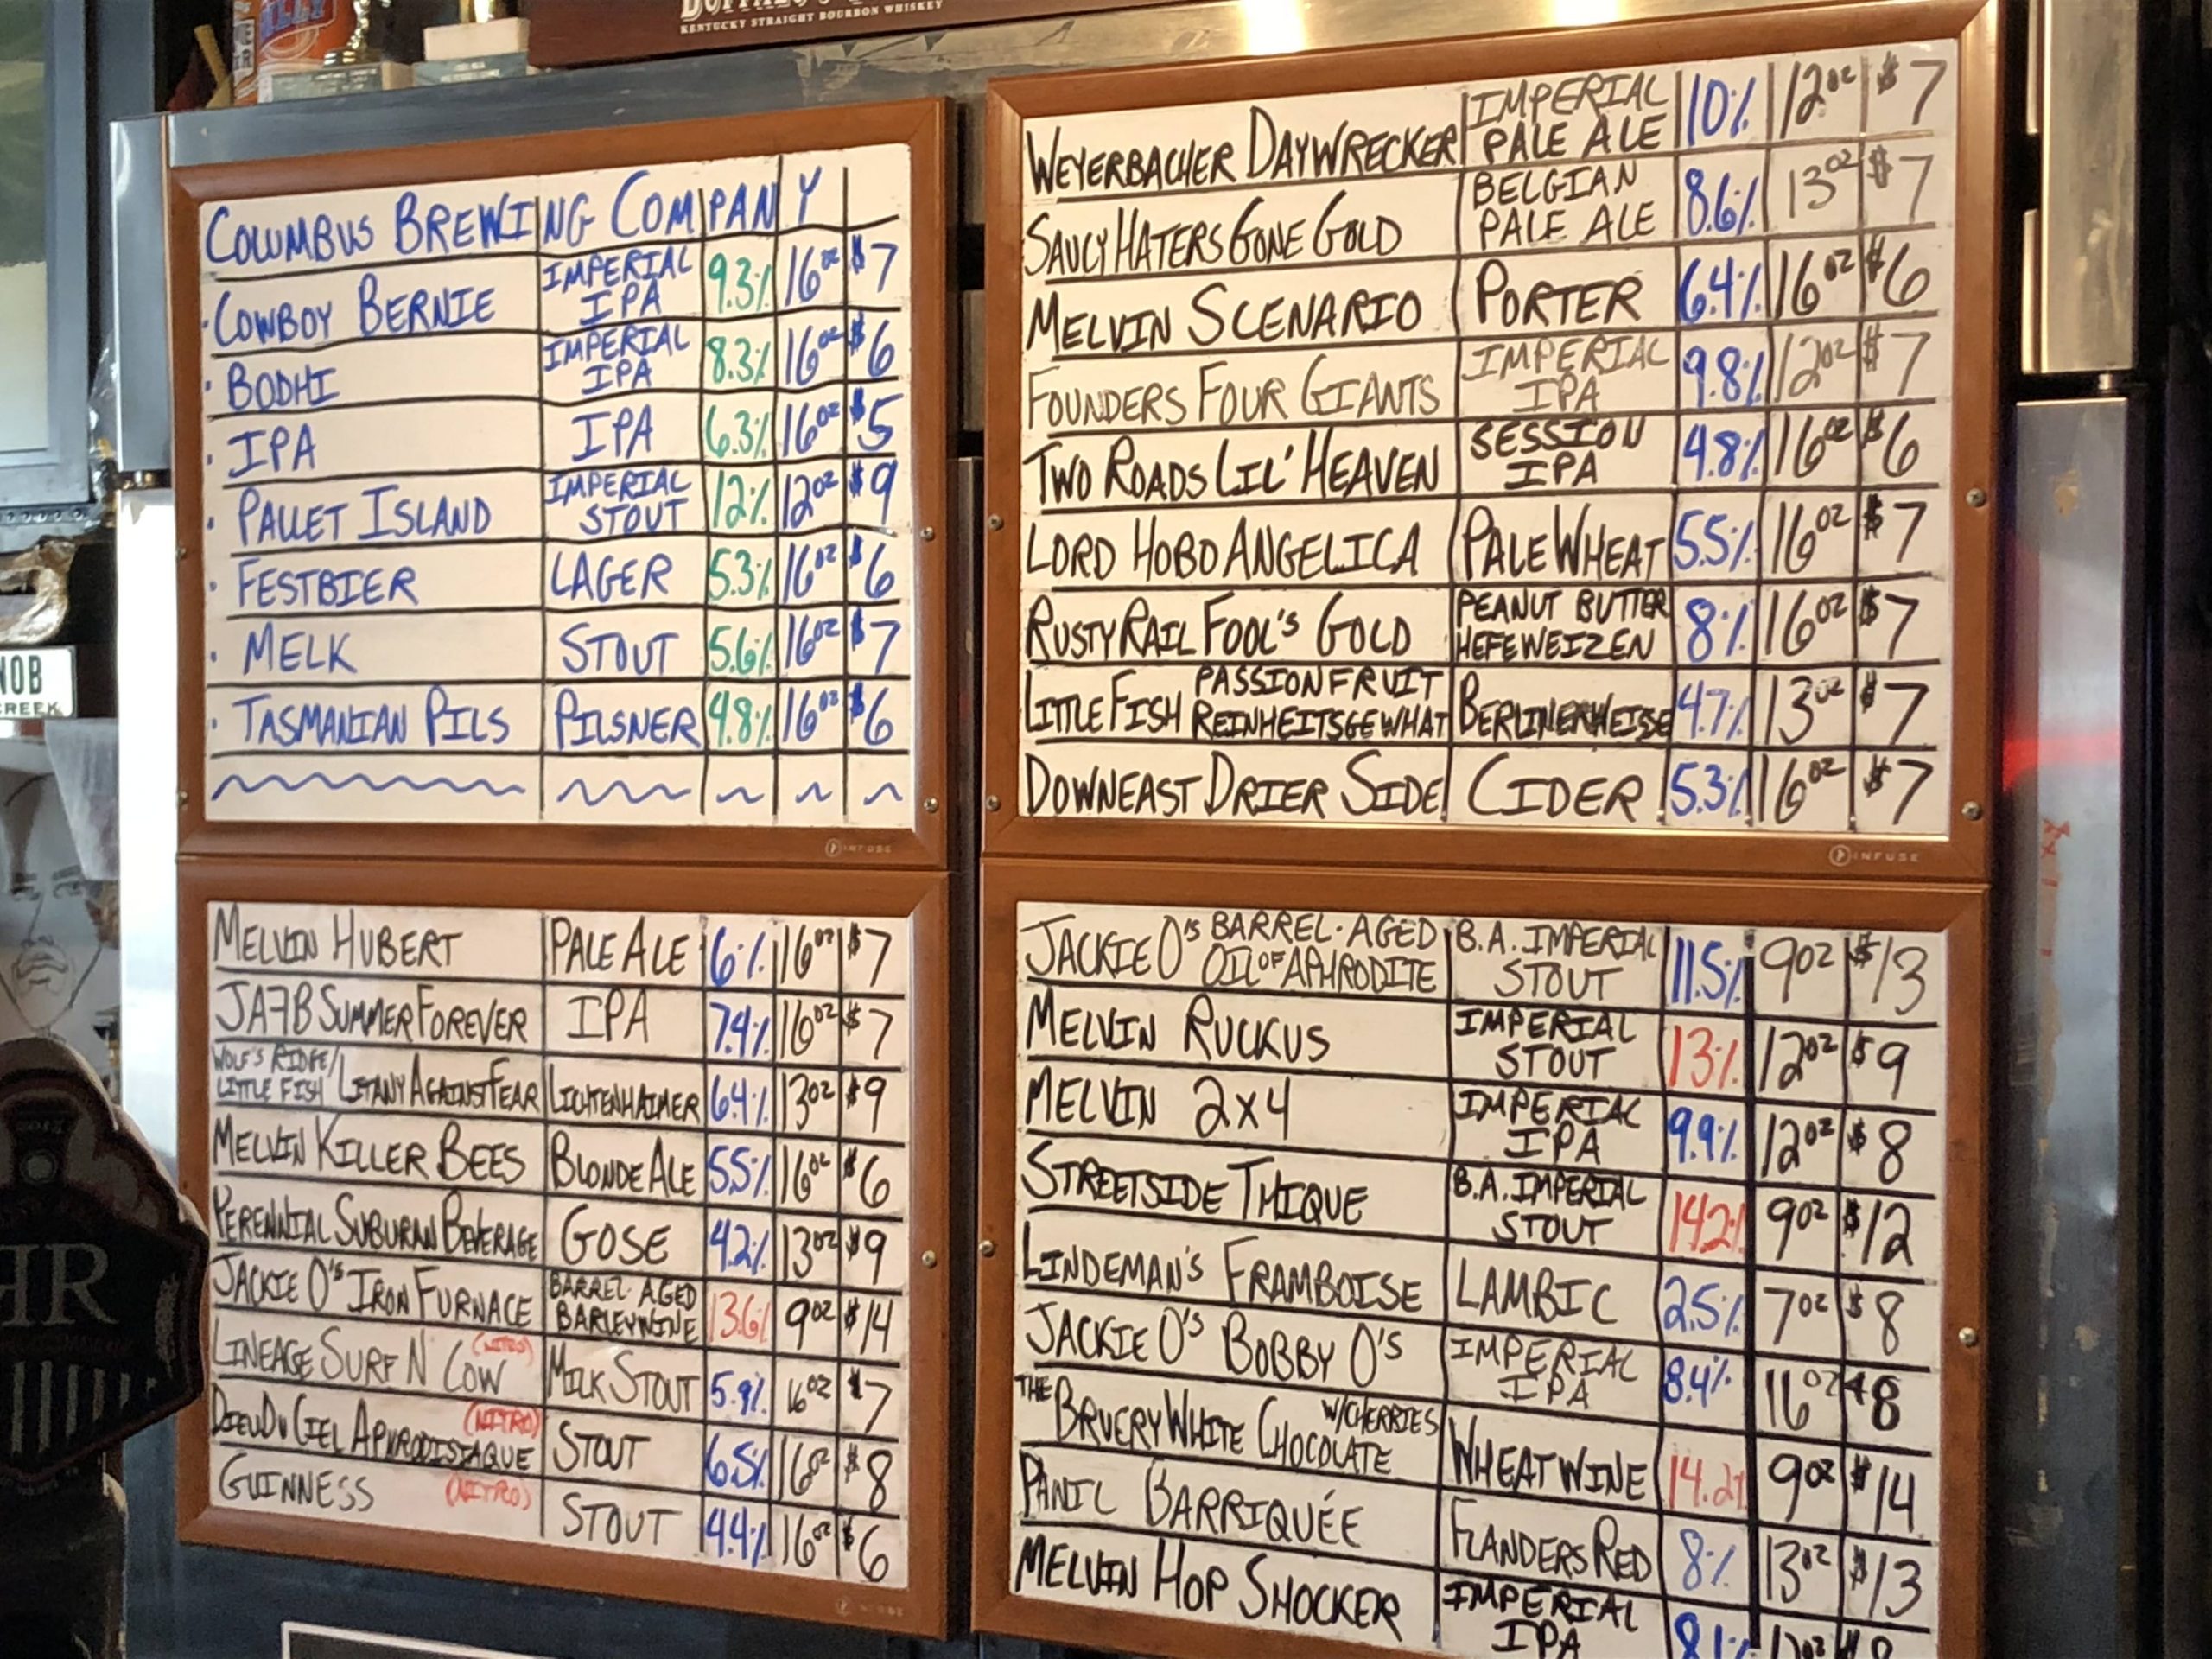 KENTUCKY STRAIGHT BOURBON WHISKEY
COLUMBUS BREWING COMPANY
· COWBOY BERNIE IMPERIAL IPA 9.3% 16oz $7
· BODHI IMPERIAL IPA 8.3% 16oz $6
· IPA IPA 6.3% 16oz $5
· PALLET ISLAND IMPERIAL STOUT 12% 12oz $9
· FESTBIER LAGER 5.3% 16oz $6
· MELK STOUT 5.6% 16oz $7
· TASMANIAN PILS PILSNER 4.8% 16oz $6
INFUSE
WEYERBACHER DAYWRECKER IMPERIAL PALE ALE 10% 12oz $7
SAUCY HATERS GONE GOLD BELGIAN PALE ALE 8.6% 13oz $7
MELVIN SCENARIO PORTER 6.4% 16oz $6
FOUNDERS FOUR GIANTS IMPERIAL IPA 9.8% 12oz $7
TWO ROADS LIL' HEAVEN SESSION IPA 4.8% 16oz $6
LORD HOBO ANGELICA PALE WHEAT 5.5% 16oz $7
RUSTY RAIL FOOL'S GOLD PEANUT BUTTER HEFEWEIZEN 8% 16oz $7
LITTLE FISH PASSIONFRUIT REINHEITSGEWHAT BERLINERWEISE 4.7% 13oz $7
DOWNEAST DRIER SIDE CIDER 5.3% 16oz $7
INFUSE
MELVIN HUBERT PALE ALE 6% 16oz $7
JAFB SUMMER FOREVER IPA 7.4% 16oz $7
WOLF'S RIDGE/ LITTLE FISH LITANY AGAINST FEAR LICHTENHAIMER 6.4% 13oz $9
MELVIN KILLER BEES BLONDE ALE 5.5% 16oz $6
PERENNIAL SUBURBAN BEVERAGE GOSE 4.2% 13oz $9
JACKIE O'S IRON FURNACE BARREL·AGED BARLEYWINE 13.6% 9oz $14
LINEAGE SURF N' COW (NITRO) MILK STOUT 5.9% 16oz $7
DIEU DU CIEL APHRODISIAQUE (NITRO) STOUT 6.5% 16oz $8
GUINNESS (NITRO) STOUT 4.4% 16oz $6
JACKIE O'S BARREL·AGED OIL OF APHRODITE B.A. IMPERIAL STOUT 11.5% 9oz $13
MELVIN RUCKUS IMPERIAL STOUT 13% 12oz $9
MELVIN 2x4 IMPERIAL IPA 9.9% 12oz $8
STREETSIDE THIQUE B.A. IMPERIAL STOUT 14.2% 9oz $12
LINDEMAN'S FRAMBOISE LAMBIC 2.5% 7oz $8
JACKIE O'S BOBBY O'S IMPERIAL IPA 8.4% 16oz $8
THE BRUERY WHITE CHOCOLATE W/CHERRIES WHEATWINE 14.2% 9oz $14
PANIL BARRIQUÉE FLANDERS RED 8% 13oz $13
MELVIN HOP SHOCKER IMPERIAL IPA 8.1%
NOB
CREEK